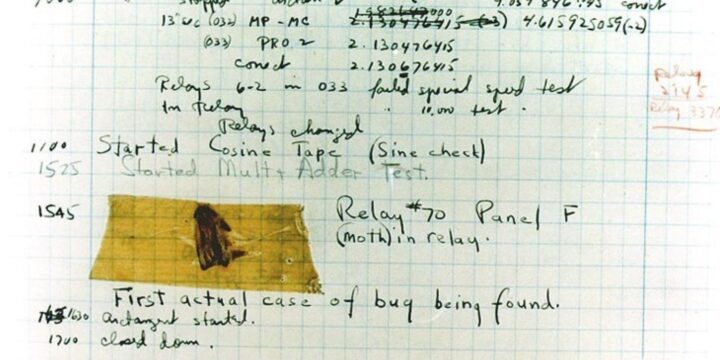 13" uc (032) MP - MC 2.130476415 (-3) 4.615925059(-2)
(033) PRO 2 2.130476415
conect 2.130676415
Relays 6-2 in 033 failed special speed test
In Relay " 10,000 test .
Relay
2145
Relay 3370
Relays changed
1100 Started Cosine Tape (Sine check)
1525 Started Mult + Adder Test.
1545 Relay #70 Panel F
(moth) in relay.
First actual case of bug being found.
1630 arctangent started.
1700 closed down.